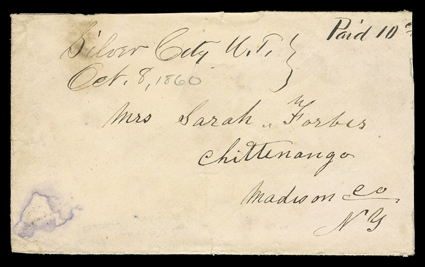 Silver City U.T.
Paid 10
Oct. 8, 1860
Mrs Sarah Forbes
Chittenango
Madison Co
N Y